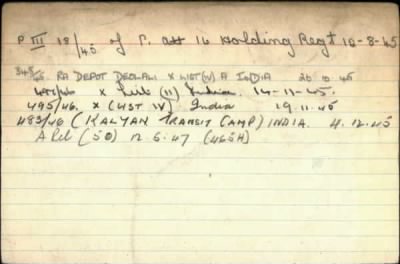 P III 18/45 of P. att 16 Holding Regt 10-8-45
345/45 RA DEPOT DEOLALI X LIST (IV) A INDIA 20 10 45
X List (II) India. 14-11-45.
495/46. X (LIST IV) India 19.11.45
483/46 (KALYAN TRANSIT CAMP) INDIA. 4.12.45
A Rel (50) 12.6.47 (465H)